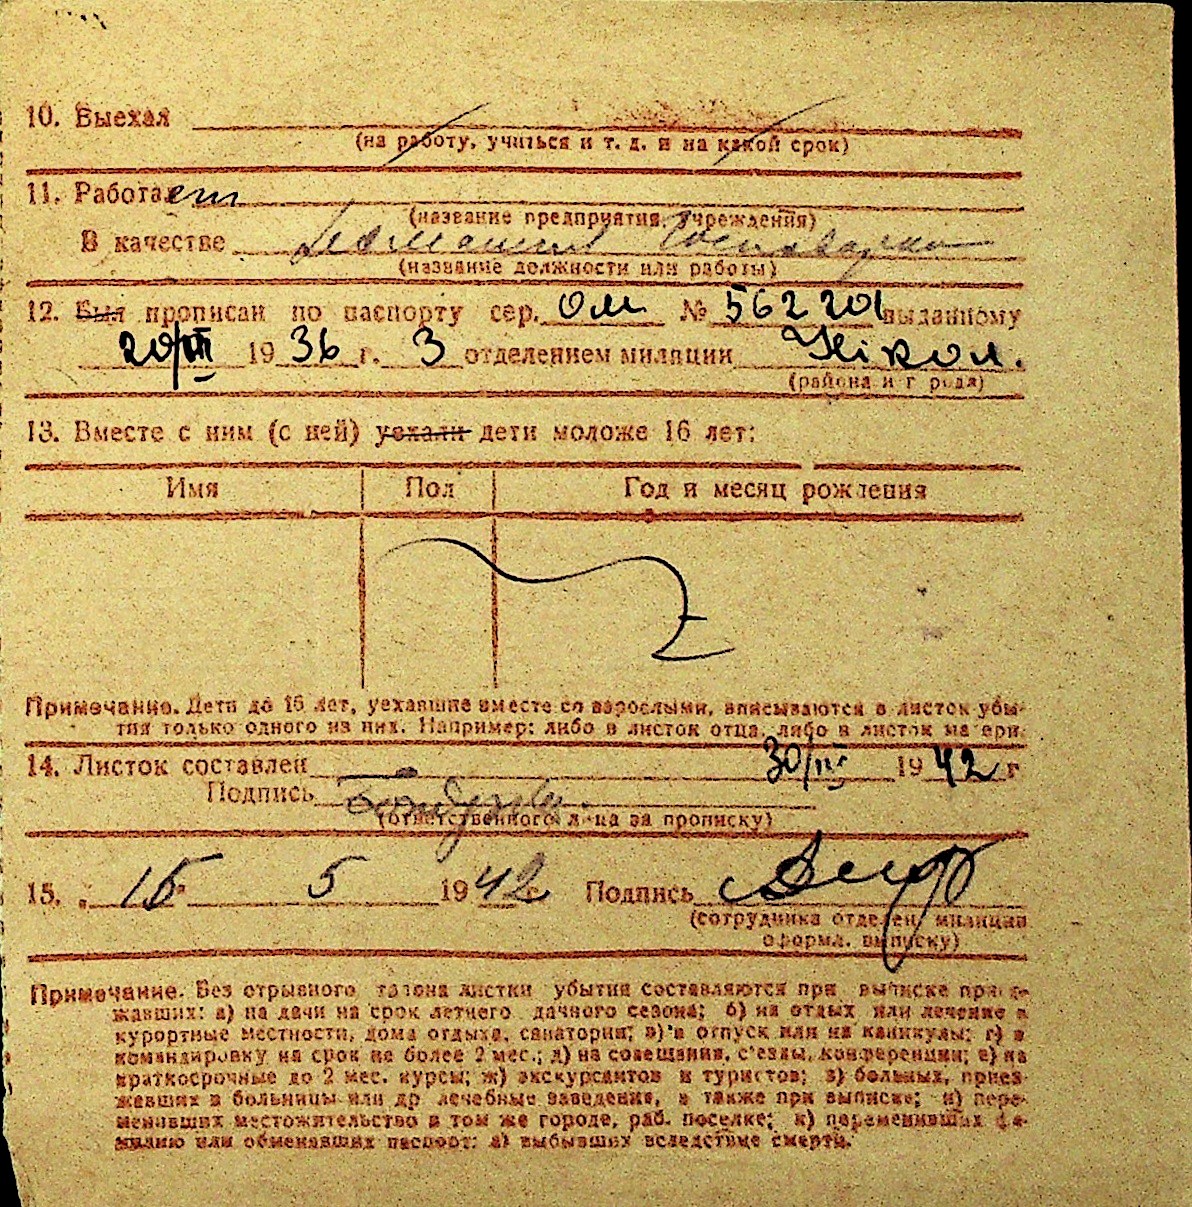 10. Выехал
(на работу, учиться и т. д. и на какой срок)
11. Работает
(название предприятия, учреждения)
В качестве домашней
(название должности или работы)
12. Был прописан по паспорту сер. ОМ № 562 201 выданному
20/III 1936 г. 3 отделением милиции Нікол.
(района и города)
13. Вместе с ним (с ней) уехали дети моложе 16 лет:
Имя Пол Год и месяц рождения
Примечание. Дети до 16 лет, уехавшие вместе со взрослыми, вписываются в листок убы-
тия только одного из них. Например: либо в листок отца, либо в листок матери.
14. Листок составлен 30/IV 1942 г
Подпись
(ответственного лица за прописку)
15. „ 15 " 5 1942 г. Подпись
(сотрудника отделен. милиции
оформ. выписку)
Примечание. Без отрывного талона листки убытия составляются при выписке приез-
жавших: а) на дачи на срок летнего дачного сезона; б) на отдых или лечение в
курортные местности, дома отдыха, санатории; в) в отпуск или на каникулы; г) в
командировку на срок не более 2 мес.; д) на совещания, с'езды, конференции; е) на
краткосрочные до 2 мес. курсы; ж) экскурсантов и туристов; з) больных, приез-
жавших в больницы или др лечебные заведения, а также при выписке; и) пере-
менивших местожительство в том же городе, раб. поселке; к) переменивших фа-
милию или обменявших паспорт; л) выбывших вследствие смерти.